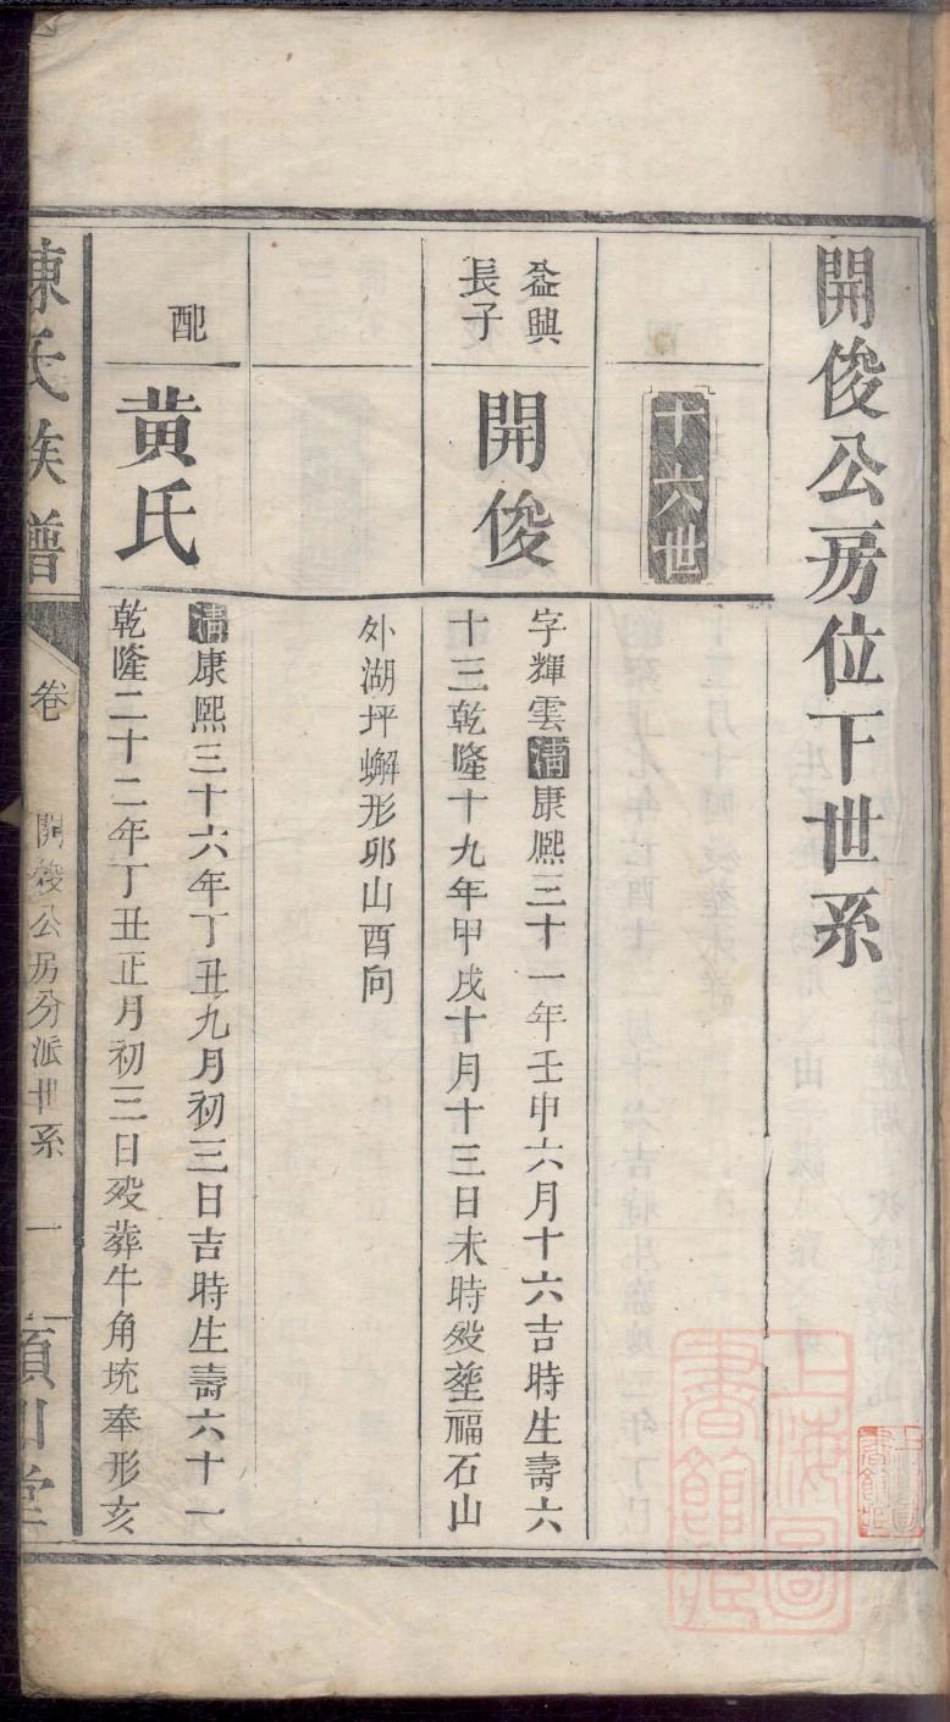 開俊公房位下世系
十六世
益興
長子
開俊
字輝雲清康熙三十一年壬申六月十六吉時生壽六
十三乾隆十九年甲戌十月十三日未時殁塟福石山
外湖坪蠏形卯山酉向
配
黄氏
清康熙三十六年丁丑九月初三日吉時生壽六十一
乾隆二十二年丁丑正月初三日殁葬牛角坑奉形亥
陳氏族譜
卷
開俊公房分派世系
一
潁川堂
上海圖書館藏
上海圖書館藏